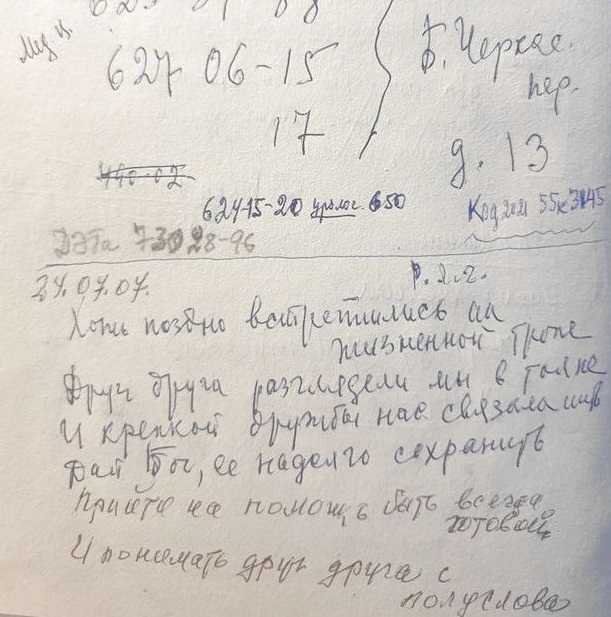 Мед ц.
627 06-15
17
Б. Черкас.
пер.
д. 13
440-02
624-15-20 уролог. 650
Код 2021 55к3145
ДЭТа 730 28-96
24.07.07.
Хоть поздно встретились на
жизненной тропе
Друг друга разглядели мы в толпе
И крепкой дружбы нас связала нить
Дай Бог, ее надолго сохранить
Прийти на помощь быть всегда
готовой,
И понимать друг друга с
полуслова